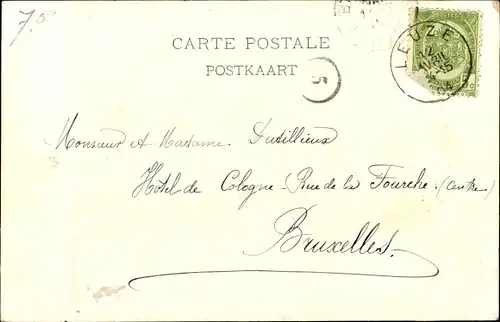 7.5
CARTE POSTALE
POSTKAART
5
LEUZE
12
AVRIL
15
04
Monsieur et Madame Dutillieux
Hôtel de Cologne (Rue de la Fourche (centre)
Bruxelles.